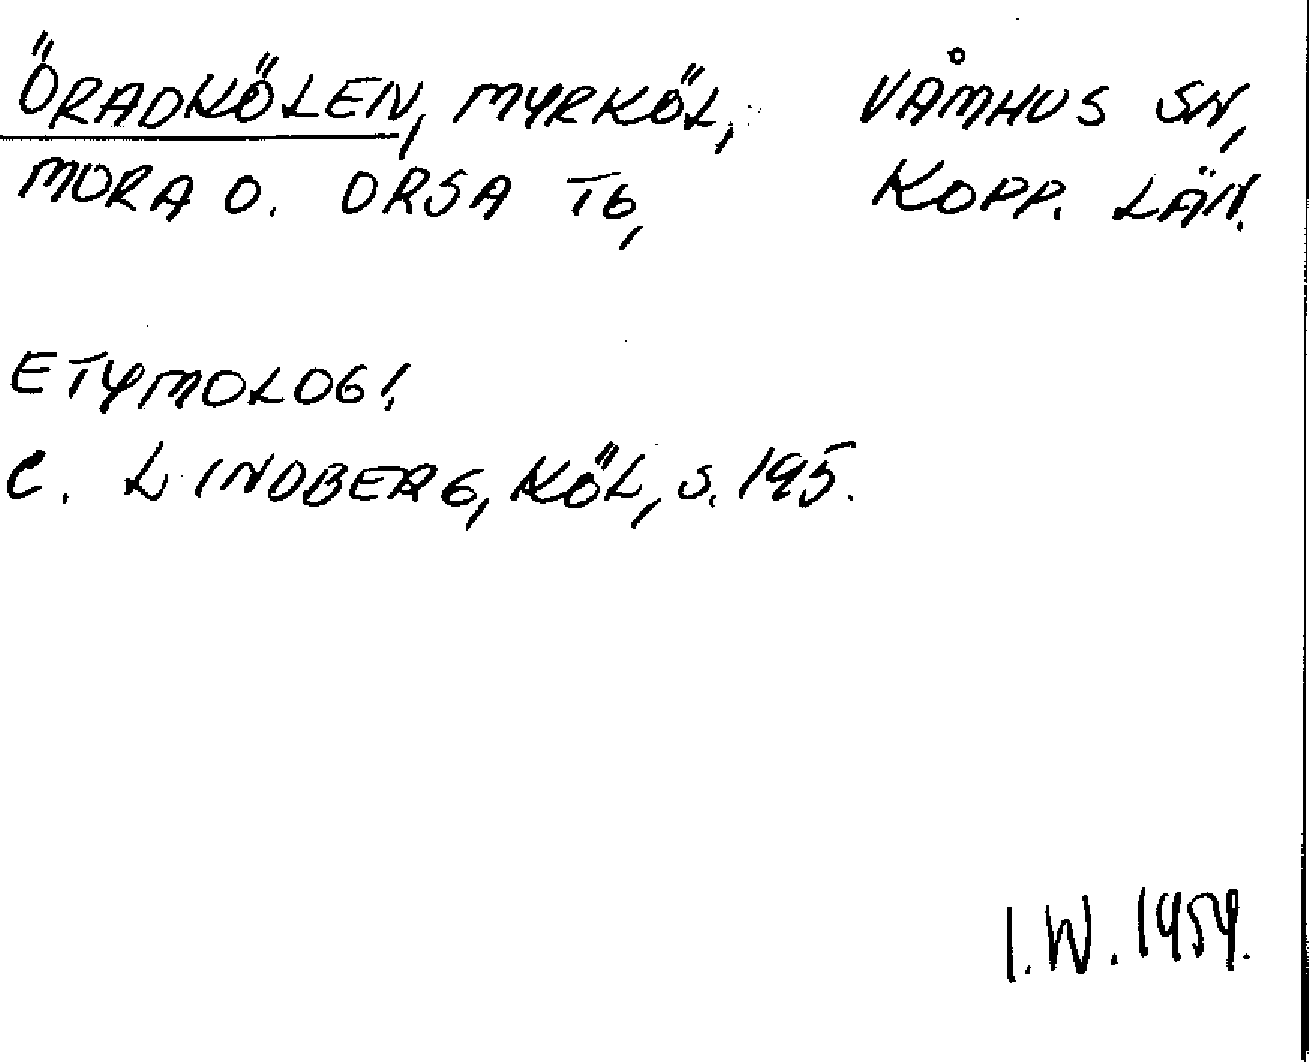 ÖRADKÖLEN, MYRKÖL, VÅMHUS SN,
MORA O. ORSA TG, KOPP. LÄN.
ETYMOLOGI.
C. LINDBERG, KÖL, S. 195.
I.W. 1959.